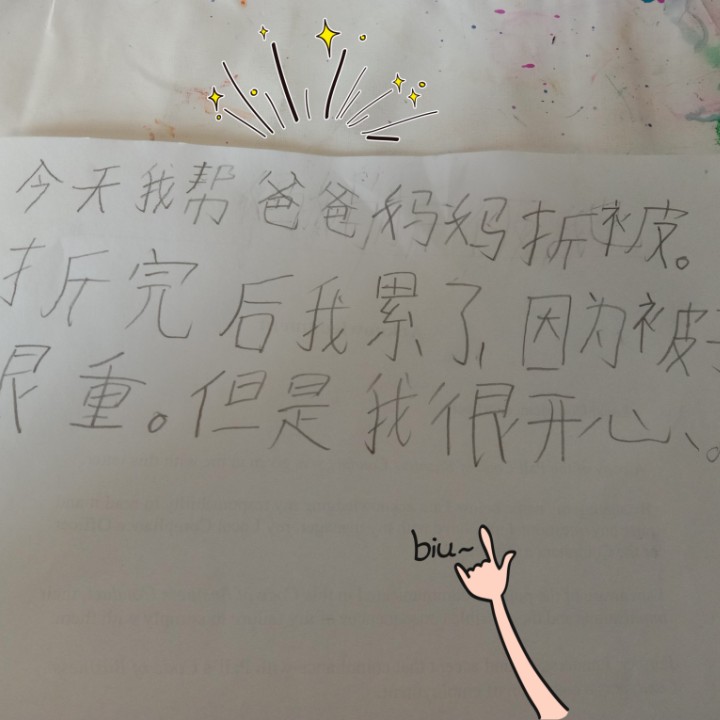 今天我帮爸爸妈妈折被。
折完后我累了,因为被子
很重。但是我很开心、。
biu~